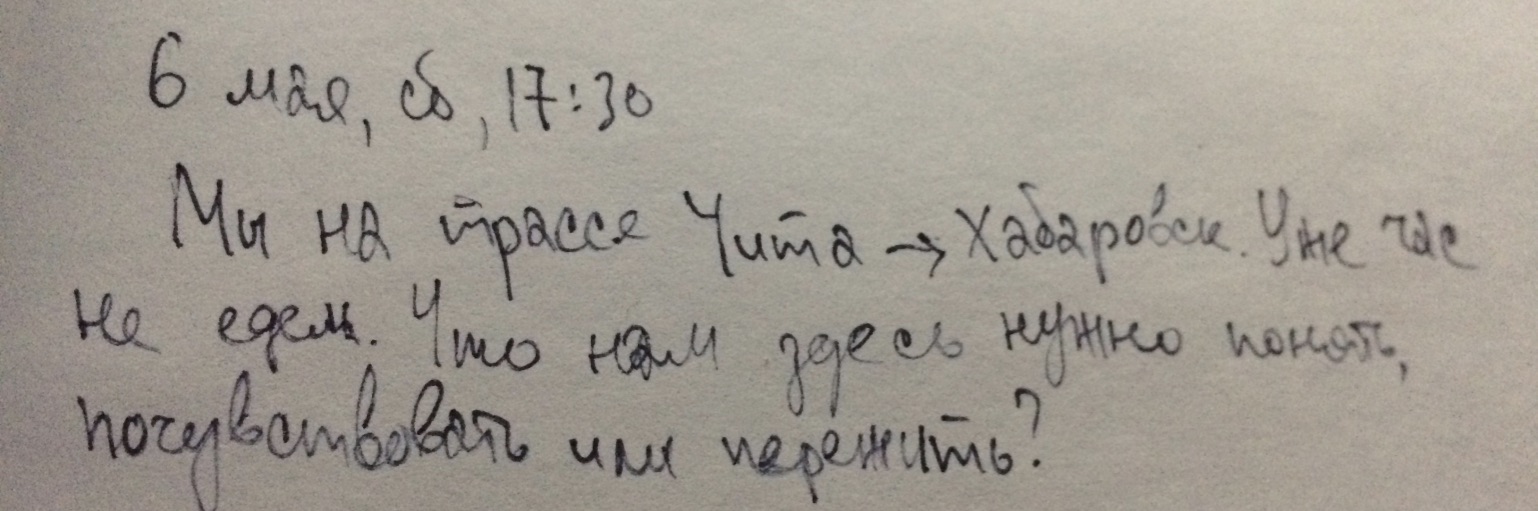 6 мая, сб, 17:30
Мы на трассе Чита → Хабаровск. Уже час
не едем. Что нам здесь нужно понять,
почувствовать или пережить?